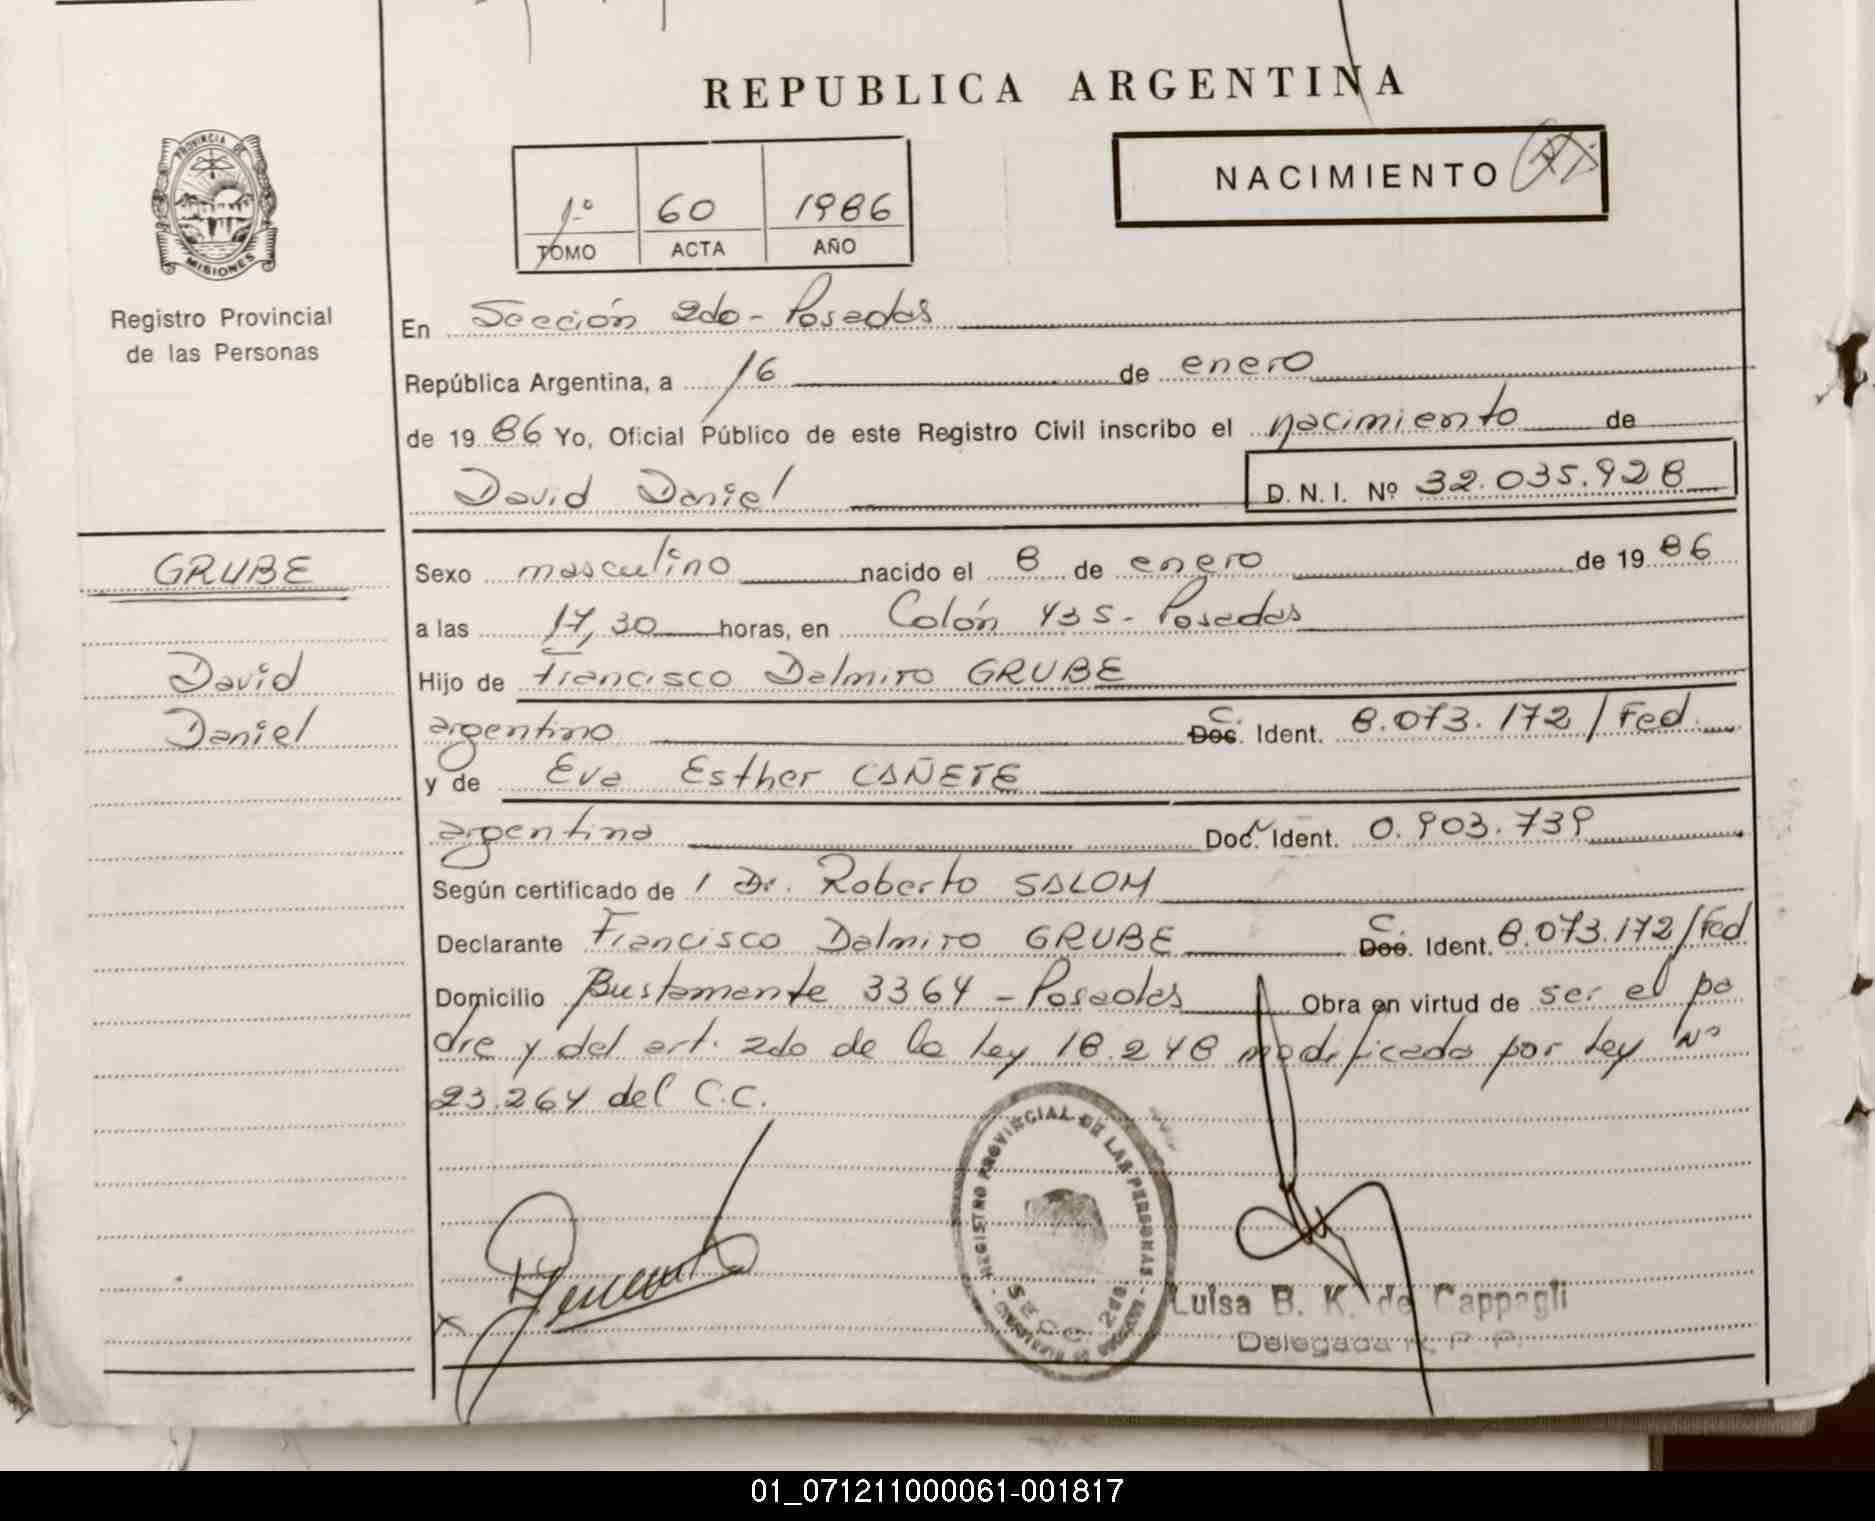 REPUBLICA ARGENTINA
PROVINCIA DE
MISIONES
Registro Provincial
de las Personas
1º 60 1986
TOMO ACTA AÑO
NACIMIENTO
En Sección 2do - Posadas
República Argentina, a 16 de enero
de 1986 Yo, Oficial Público de este Registro Civil inscribo el nacimiento de
David Daniel D. N. I. Nº 32.035.928
GRUBE
David
Daniel
Sexo masculino nacido el 8 de enero de 1986
a las 17,30 horas, en Colón 435 - Posadas
Hijo de Francisco Dalmiro GRUBE
argentino C. Doc. Ident. 8.073.172/Fed.
y de Eva Esther CAÑETE
argentina Doc. Ident. 0.903.739
Según certificado de / Dr. Roberto SALOM
Declarante Francisco Dalmiro GRUBE C. Doc. Ident. 8.073.172/Fed
Domicilio Bustamente 3364 - Posadas Obra en virtud de ser el pa
dre y del art. 2do de la ley 18.248 modificada por ley Nº
23.264 del C.C.
REGISTRO PROVINCIAL DE LAS PERSONAS
SECC. 2da.
Luisa B. K. de Cappagli
Delegada R. P. P.
01_071211000061-001817